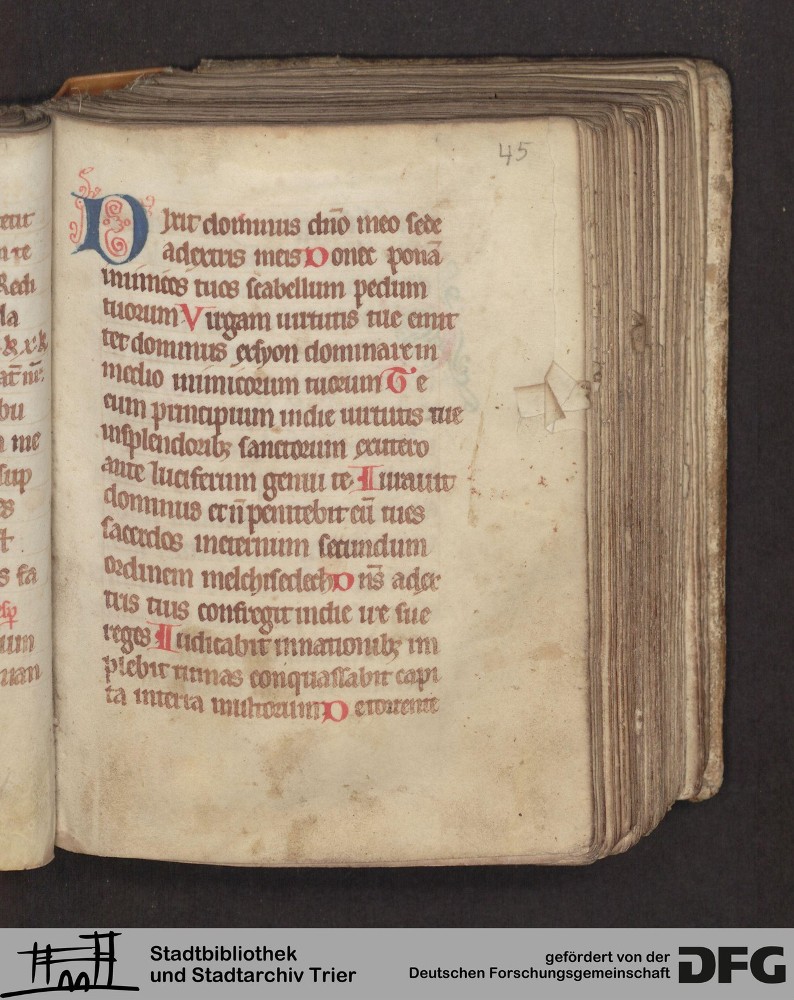 45
Dixit dominus dño meo sede
adextris meis Donec ponā
inimicos tuos scabellum pedum
tuorum Virgam uirtutis tue emit
tet dominus exsyon dominare in
medio inimicorum tuorum Te
cum principium indie uirtutis tue
insplendoribꝫ sanctorum exutero
ante luciferum genui te Iurauit
dominus et ñ penitebit eū tu es
sacerdos ineternum secundum
ordinem melchisedech Dñs adex
tris tuis confregit indie ire sue
reges Iudicabit innationibꝫ im
plebit ruinas conquassabit capi
ta interra multorum De torrente
la
bu
me
sup
es
s fa
Stadtbibliothek
und Stadtarchiv Trier
gefördert von der
Deutschen Forschungsgemeinschaft
DFG